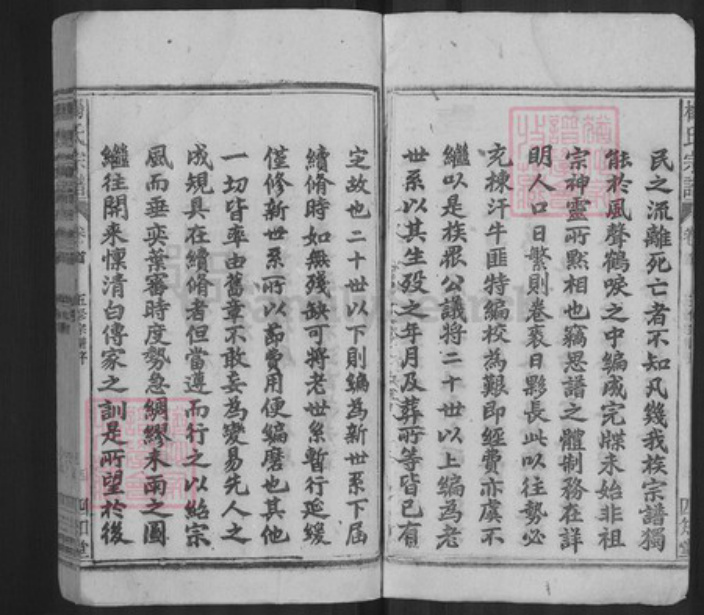 民之流離死亡者不知凡幾我族宗譜獨
能於風聲鶴唳之中編成完牒未始非祖
宗神靈所默相也竊思譜之體制務在詳
明人口日繁則卷袠日夥長此以往勢必
充棟汗牛匪特編校為艱即經費亦虞不
繼以是族眾公議將二十世以上編為老
世系以其生殁之年月及葬所等皆已有
定故也二十世以下則編為新世系下屆
續脩時如無殘缺可將老世系暫行延緩
僅修新世系所以節費用便編磨也其他
一切皆率由舊章不敢妄為變易先人之
成規具在續脩者但當遵而行之以紹宗
風而垂奕葉審時度勢急綢繆未雨之圖
繼往開來懍清白傳家之訓是所望於後
楊氏宗譜
四知堂